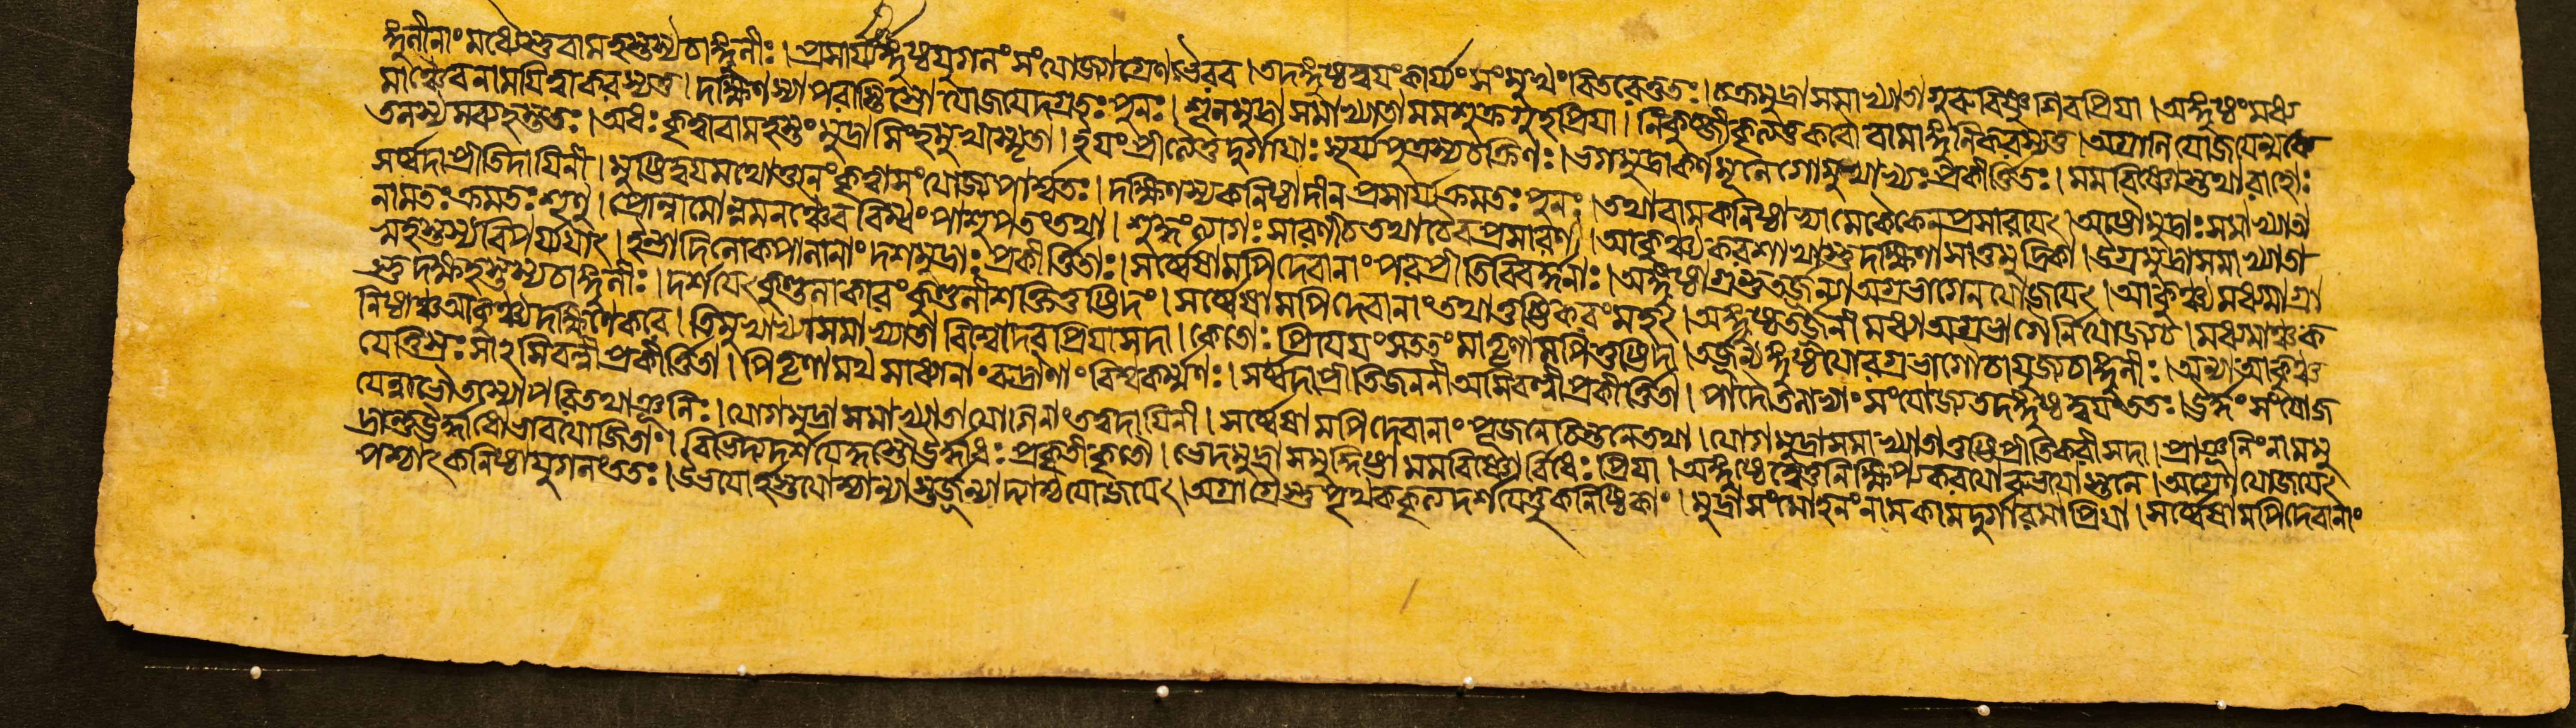 ঙ্গুলীনাং মধ্যেস্তুবামহস্তস্যচাঙ্গুলীঃ।প্রসার্য্যাঙ্গুষ্ঠযুগলং সংযোজ্যাগ্রেণভৈরব।তদঙ্গুষ্ঠদ্বযংকার্য্যং সংমুখং বিতরেত্ততঃ।চক্রমুদ্রাসমাখ্যাতা গুরুবিষ্ণুশিবপ্রিযা।অঙ্গুষ্ঠংমধ্য
মাঞ্চৈবনামযিত্বাকরস্যতু।দক্ষিণস্যাপরাস্তিস্রো যোজযেদগ্রতঃ পুনঃ।শূলমুদ্রা সমাখ্যাতা মমশুক্রগুহপ্রিযা।নিকুব্জীকৃত্যতুকরৌ বামাঙ্গুলিকরস্যতু।অগ্রানি যোজযেন্মধ্যে
তলস্যসব্যহস্ততঃ।অধঃ কৃত্বাবামহস্তং মুদ্রাসিংহমুখাস্মৃতা।ইযংপ্রীত্যৈতু দুর্গাযাঃ সূর্য্যপুত্রস্যচক্রিণঃ।ভগমুদ্রাকর্ণমূলে গোমুখাখ্যঃ প্রকীর্ত্তিতঃ।মমবিষ্ণোস্তথারাহোঃ
সর্ব্বদাপ্রীতিদাযিনী।মুষ্টিদ্বযমথোত্তানং কৃত্বাসংযোজ্যপার্শ্বতঃ।দক্ষিণস্যকনিষ্ঠাদীন প্রসার্য্যক্রমতঃ পুনঃ।তথাবামকনিষ্ঠাখ্যামেকৈকেনপ্রসারাযেৎ।অষ্টৌমুদ্রাঃ সমাখ্যাতা
নামতঃ ক্রমতঃ শৃণু।প্রোন্নামোন্নমনঞ্চৈব বিম্বং পাশুপতং তথা।শুদ্ধংত্যাগঃ সারণীচ তথাচৈব প্রসারণী।আকুঞ্চ্যকরশাখাস্তু দক্ষিণাসাতুমুদ্রিকা।উগ্রমুদ্রাসমাখ্যাতা
মহস্তস্যবিপর্য্যযাৎ।ইন্দ্রাদিলোকপালানাং দশমুদ্রাঃ প্রকীর্ত্তিতাঃ।সর্ব্বেষামপিদেবানাং পরপ্রীতিবিবর্দ্ধনাঃ।অঙ্গুষ্ঠাগ্রন্তুতর্জন্যা অগ্রভাগেনযোজযেৎ।আকুঞ্চ্যমধ্যমাগ্রা
স্তু দক্ষহস্তস্যচাঙ্গুলীঃ।দর্শযেৎকুণ্ডলাকারং কুণ্ডলীশক্তিতুষ্টিদং।সর্ব্বেষামপিদেবানাং তথাতুষ্টিকরংমহৎ।অঙ্গুষ্ঠতর্জনী মধ্যা অগ্রভাগৈর্নিযোজ্যচ।মধ্যমাঞ্চক
নিষ্ঠাঞ্চআকুঞ্চ্যদক্ষিণেকরে।ত্রিমুখাখ্যাসমাখ্যাতা বিশ্বেদেবপ্রিযাসদা।কেতোঃ প্রিযেযংসততং মাতৃণামপিতুষ্টিদা।তর্জন্যঙ্গুষ্ঠযোরগ্রভাগৌচাযুজ্যচাঙ্গুলীঃ।অন্যাআকুঞ্চ
যেত্তিস্রঃ সাৎসিবল্লীপ্রকীর্ত্তিতা।পিতৃণামথ সাধ্যানাং রুদ্রাণাং বিশ্বকর্ম্মণঃ।সর্ব্বদাপ্রীতিজননী অসিবল্লীপ্রকীর্ত্তিতা।পাদৌতলাভ্যাং সংযোজ্যতদঙ্গুষ্ঠদ্বযংততঃ।ঊর্দ্ধং সংযোজ
যেন্নাভৌতস্যোপরিতথাঞ্জলিঃ।যোগমুদ্রাসমাখ্যাতাযোগিনাং তত্ত্বদাযিনী।সর্ব্বেষামপিদেবানাং পূজনেচিন্তনেতথা।যোগমুদ্রাসমাখ্যাতাতুষ্টিপ্রীতিকরীসদা।প্রাঞ্জলিংনামমু
দ্রান্তুঊর্দ্ধাধোভাবযোজিতাং।বিভেদ্যদর্শযেদ্ধস্তৌঊর্দ্ধাধঃ প্রকৃতীকৃতৌ।ভেদমুদ্রাসমুদ্দিষ্টা মমবিষ্ণোর্বিধেঃ প্রিযা।অঙ্গুষ্ঠেদ্বেতুনিক্ষিপ্যকরযোরুভযোস্তলে।অগ্রেণযোজযেৎ
পশ্চাৎকনিষ্ঠাযুগলংততঃ।উভযোর্হস্তযোশ্চান্যাস্তর্জন্যাদ্যাশ্চযোজযেৎ।অগ্রাগ্রৈস্তু পৃথককৃত্যদর্শযেত্তুকনিষ্ঠিকাং।মুদ্রাসংমোহনংনামকামদুর্গারমাপ্রিযা।সর্ব্বেষামপিদেবানাং